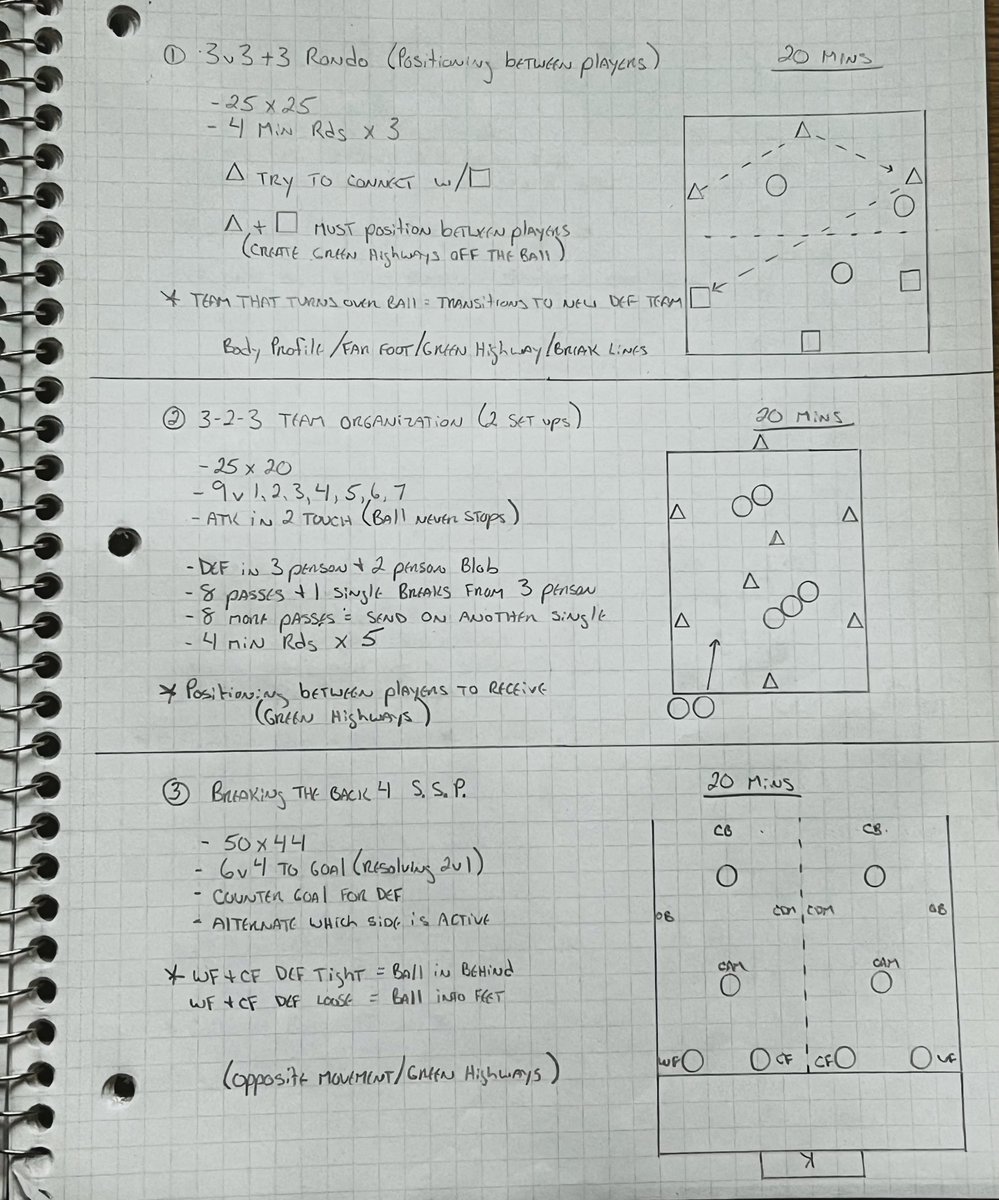 ① 3v3+3 Rondo (Positioning between players)
20 mins
- 25 x 25
- 4 min Rds x 3
△ try to connect w/□
△ + □ must position between players
(create green highways off the ball)
* Team that turns over ball = transitions to new def team
Body Profile/far foot/green highway/break lines
② 3-2-3 team organization (2 set ups)
20 mins
- 25 x 20
- 9v1,2,3,4,5,6,7
- Atk in 2 touch (ball never stops)
- Def in 3 person + 2 person blob
- 8 passes + 1 single breaks from 3 person
- 8 more passes = send on another single
- 4 min Rds x 5
* Positioning between players to receive
(green highways)
③ Breaking the back 4 S.S.P.
20 mins
- 50 x 44
- 6v4 to goal (resolving 2v1)
- counter goal for def
- Alternate which side is active
* WF + CF def tight = ball in behind
WF + CF def loose = ball into feet
(opposite movement/green highways)
CB CB
OB CDM CDM OB
CAM CAM
WF CF CF WF
K